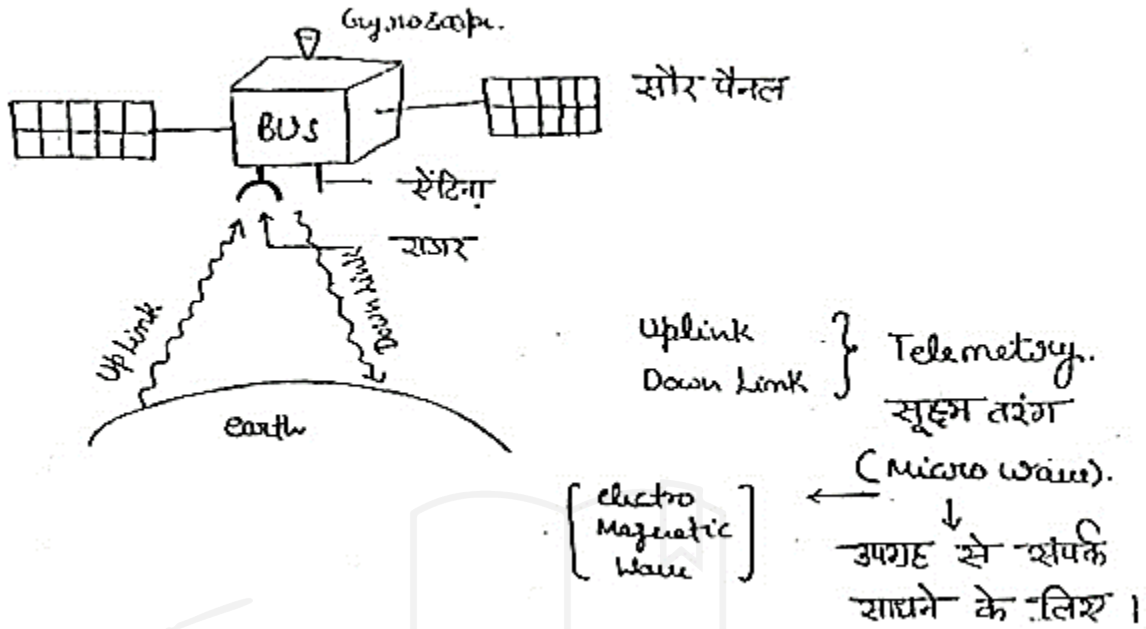 Gyroscope.
सौर पैनल
BUS
ऐंटिना
राडार
Up Link
Down Link
earth
Uplink
Down Link
Telemetry.
सूक्ष्म तरंग
(Micro wave).
electro
Magnetic
wave
उपग्रह से संपर्क
साधने के लिए।